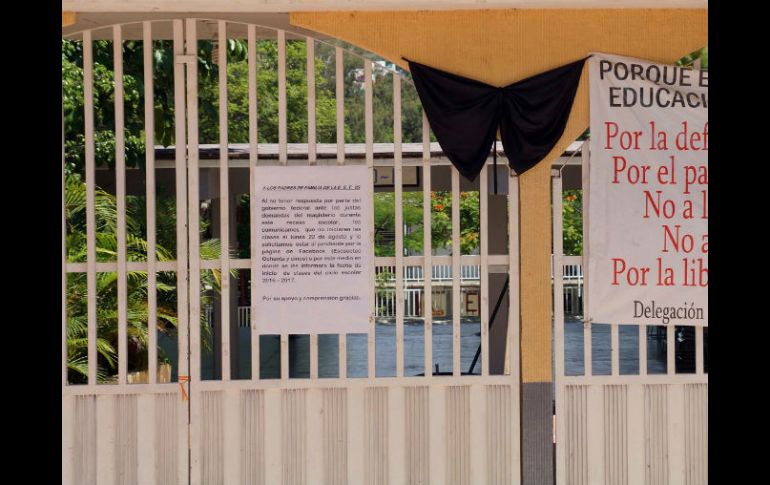 A LOS PADRES DE FAMILIA DE LA E. S. F. 85
Al no tener respuesta por parte del
gobierno federal ante las justas
demandas del magisterio durante
este receso escolar, les
comunicamos que no inician las
clases el lunes 22 de agosto y le
solicitamos estar al pendiente por la
página de Facebook (Escuelas
Ochenta y cinco) o por este medio en
donde se les informara la fecha de
inicio de clases del ciclo escolar
2016 - 2017.
Por su apoyo y comprensión gracias.
PORQUE E
EDUCACI
Por la def
Por el pa
No a l
No a
Por la lib
Delegación